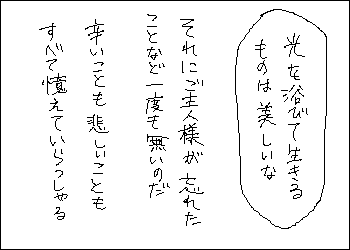 光を浴びて生きる
ものは美しいな
それにご主人様が忘れた
ことなど一度も無いのだ
辛いことも悲しいことも
すべて憶えていらっしゃる